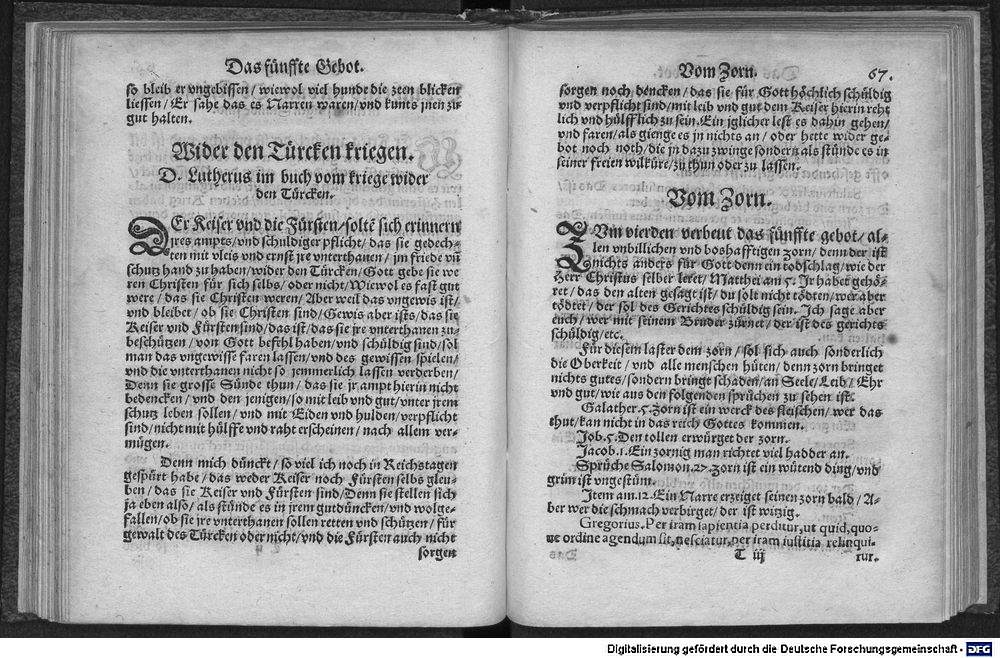 Das fünffte Gebot.
so bleib er vngebissen / wiewol viel hunde die zeen blicken
liessen / Er sahe das es Narren waren / vnd kunts jnen zu
gut halten.
Wider den Türcken kriegen.
D. Lutherus im buch vom kriege wider
den Türcken.
DEr Keiser vnd die Fürsten / soltē sich erinnern
jres ampts / vnd schuldiger pflicht / das sie gedech-
ten mit vleis vnd ernst jre vnterthanen / jm friede vn̄
schutz hand zu haben / wider den Türcken / Gott gebe sie we
ren Christen für sich selbs / oder nicht / Wiewol es fast gut
were / das sie Christen weren / Aber weil das vngewis ist /
vnd bleibet / ob sie Christen sind / Gewis aber ists / das sie
Keiser vnd Fürsten sind / das ist / das sie jre vnterthanen zu-
beschützen / von Gott befehl haben / vnd schüldig sind / sol
man das vngewisse faren lassen / vnd des gewissen spielen /
vnd die vnterthanen nicht so jemmerlich lassen verderben /
Denn sie grosse Sünde thun / das sie jr ampt hierin nicht
bedencken / vnd den jenigen / so mit leib vnd gut / vnter jrem
schutz leben sollen / vnd mit Eiden vnd hulden / verpflicht
sind / nicht mit hülffe vnd raht erscheinen / nach allem ver-
mügen.
Denn mich dünckt / so viel ich noch in Reichstagen
gespürt habe / das weder Keiser noch Fürsten selbs gleu-
ben / das sie Keiser vnd Fürsten sind / Denn sie stellen sich
ja eben also / als stünde es in jrem gutdüncken / vnd wolge-
fallen / ob sie jre vnterthanen sollen retten vnd schützen / für
gewalt des Türcken oder nicht / vnd die Fürsten auch nicht
sorgen
Vom Zorn. 67.
sorgen noch dencken / das sie für Gott höchlich schüldig
vnd verpflicht sind / mit leib vnd gut dem Keiser hierin reht
lich vnd hülfflich zu sein. Ein jglicher lest es dahin gehen /
vnd faren / als gienge es jn nichts an / oder hette wider ge-
bot noch noth / die jn dazu zwinge sondern als stünde es in
seiner freien wilküre / zu thun oder zu lassen.
Vom Zorn.
ZVm vierden verbeut das fünffte gebot / al-
len vnbillichen vnd boshafftigen zorn / denn der ist
nichts anders für Gott denn ein todschlag / wie der
Herr Christus selber leret / Matthei am 5. Ir habet gehö-
ret / das den alten gesagt ist / du solt nicht tödten / wer aber
tödtet / der sol des Gerichtes schüldig sein. Ich sage aber
euch / wer mit seinem Bruder zürnet / der ist des gerichts
schüldig / etc.
Für diesem laster dem zorn / sol sich auch sonderlich
die Oberkeit / vnd alle menschen hüten / denn zorn bringet
nichts gutes / sondern bringt schaden / an Seele / Leib / Ehr
vnd gut / wie aus den folgenden sprüchen zu sehen ist.
Galather. 5. Zorn ist ein werck des fleischen / wer das
thut / kan nicht in das reich Gottes kommen.
Job. 5. Den tollen erwürget der zorn.
Jacob. 1. Ein zornig man richtet viel hadder an.
Sprüche Salomon. 27. Zorn ist ein wütend ding / vnd
grim ist vngestüm.
Item am. 12. Ein Narre erzeiget seinen zorn bald / A-
ber wer die schmach verbirget / der ist witzig.
Gregorius. Per iram sapientia perditur, ut quid, quo-
ue ordine agendum sit, nesciatur, per iram iustitia relinqui-
T iij rur.
Digitalisierung gefördert durch die Deutsche Forschungsgemeinschaft - DFG